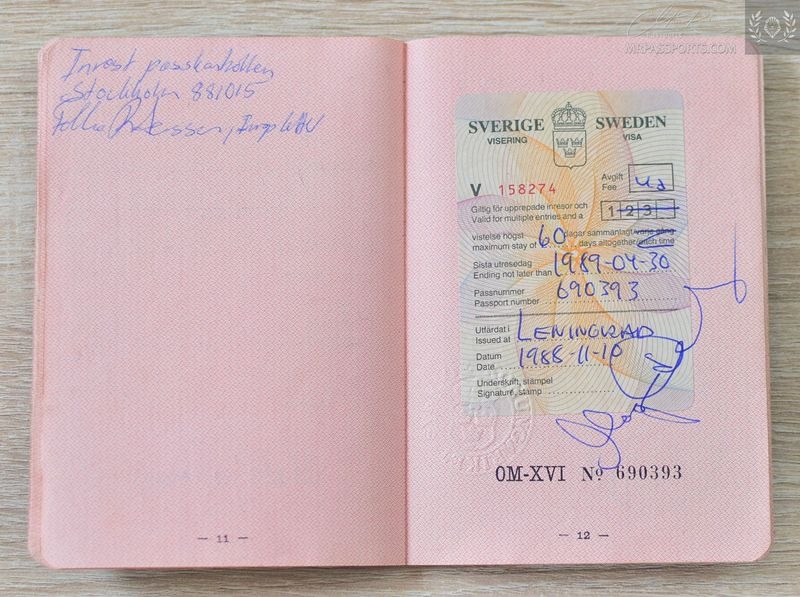 MRPASSPORTS.COM
Inrest passkontrollen
Stockholm 881015
- 11 -
SVERIGE SWEDEN
VISERING VISA
V 158274
Avgift
Fee
Giltig för upprepade inresor och
Valid for multiple entries and a
1 2 3
vistelse högst 60 dagar sammanlagt/varje gång
maximum stay of days altogether/each time
Sista utresedag 1989-04-30
Ending not later than
Passnummer 690393
Passport number
Utfärdat i LENINGRAD
Issued at
Datum 1988-11-10
Date
Underskrift, stämpel
Signature, stamp
OM-XVI № 690393
- 12 -